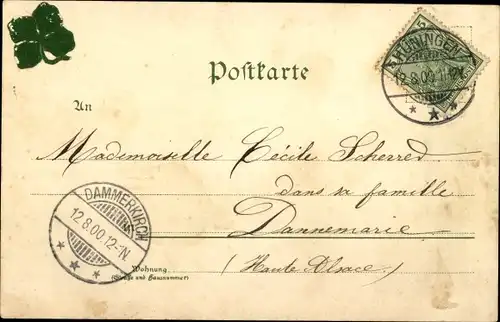 5
HÜNINGEN
12.8.00.11-12N.
Postkarte
An
Mademoiselle Cécile Scherred
dans sa famille
Dannemarie
(Haute Alsace)
DAMMERKIRCH
12.8.00.12-1N.
Wohnung
(Straße und Hausnummer)